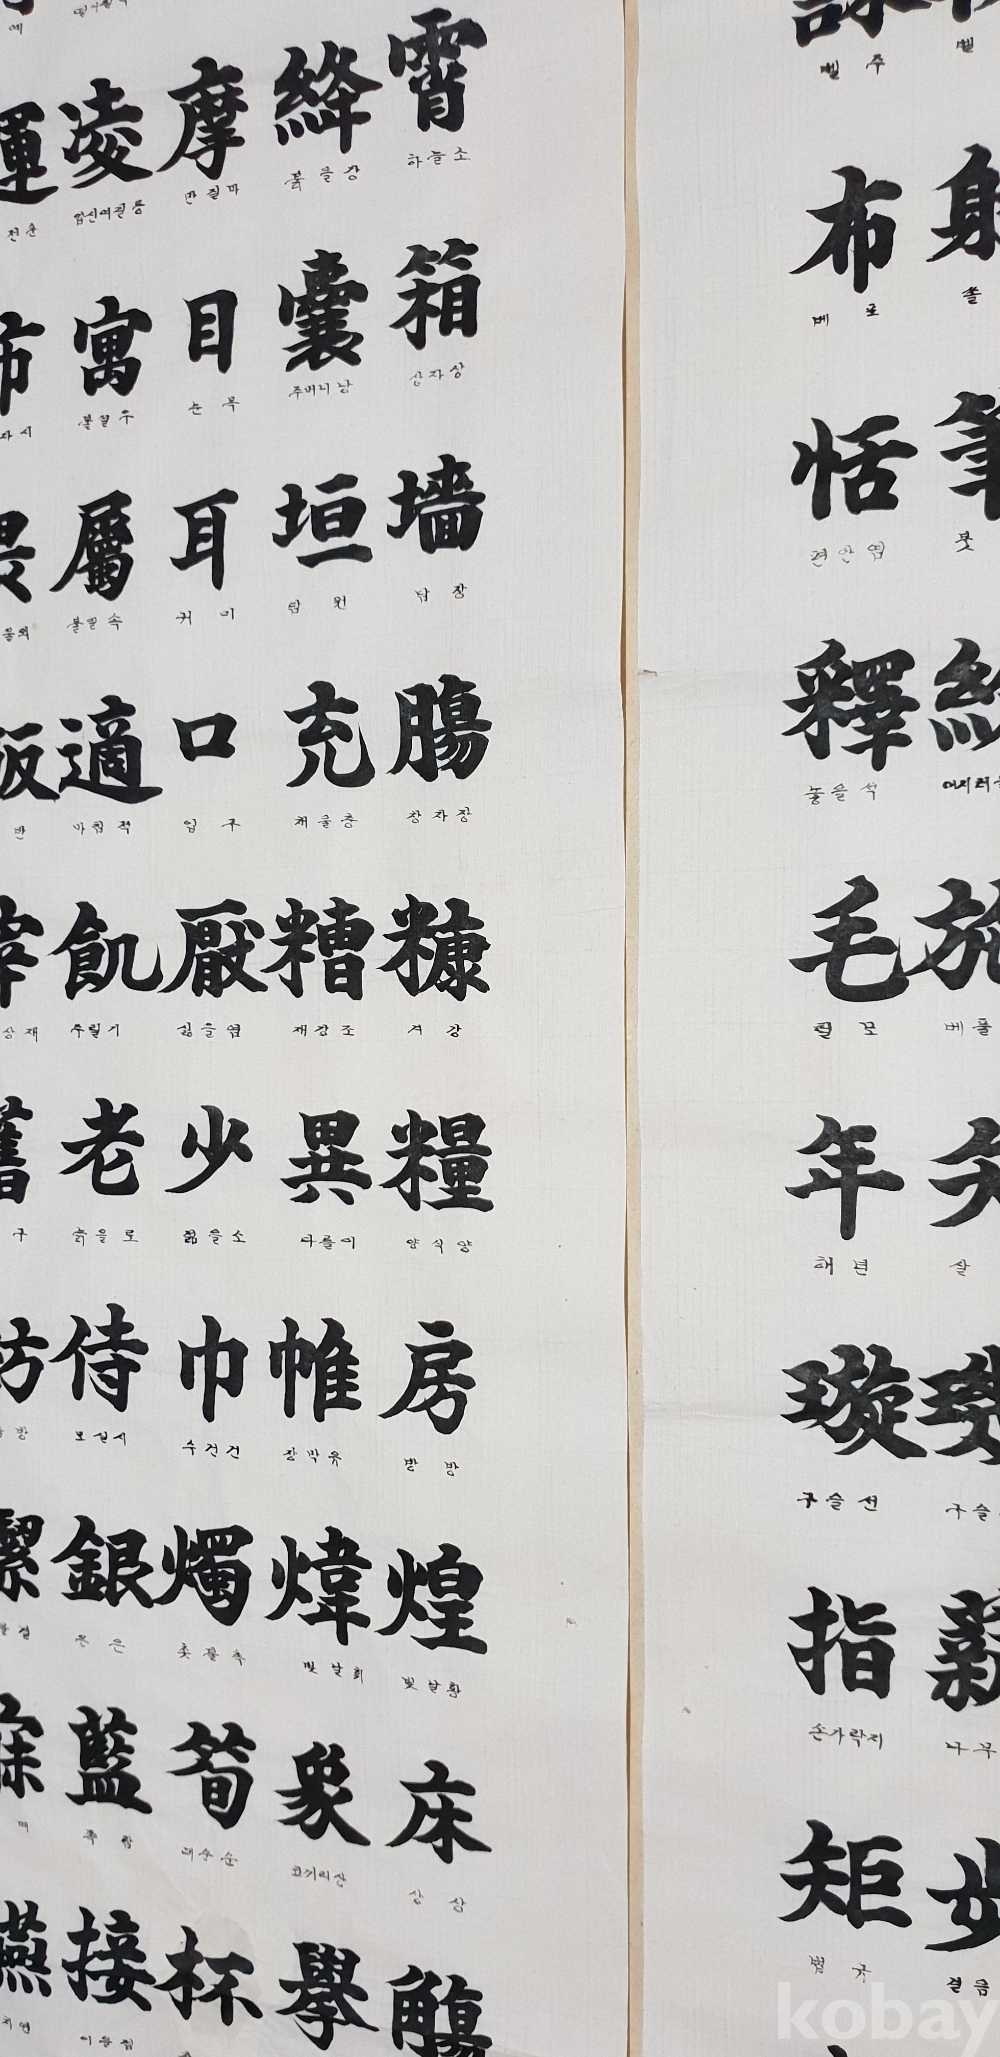 凌 摩 絳 霄
업신여길릉 만질마 붉을강 하늘소
市 寓 目 囊 箱
자시 붙일우 눈목 주머니낭 상자상
畏 屬 耳 垣 墻
붙일속 귀이 담원 담장
飯 適 口 充 腸
반 마침적 입구 채울충 창자장
宰 飢 厭 糟 糠
상재 주릴기 싫을염 재강조 겨강
舊 老 少 異 糧
구 늙을로 젊을소 다를이 양식양
紡 侍 巾 帷 房
방 모실시 수건건 장막유 방방
潔 銀 燭 煒 煌
결 은은 촛불촉 빛날휘 빛날황
寐 藍 筍 象 床
매 쪽람 대순순 코끼리상 상상
燕 接 杯 擧 觴
이을접
벨주 벨
布 射
베포 쏠
恬 筆
편안염 붓
釋 紛
놓을석 어지러울
毛 施
털모 베풀
年 矢
해년 살
璇 璣
구슬선 구슬
指 薪
손가락지 나무
矩 步
법구 걸음
kobay